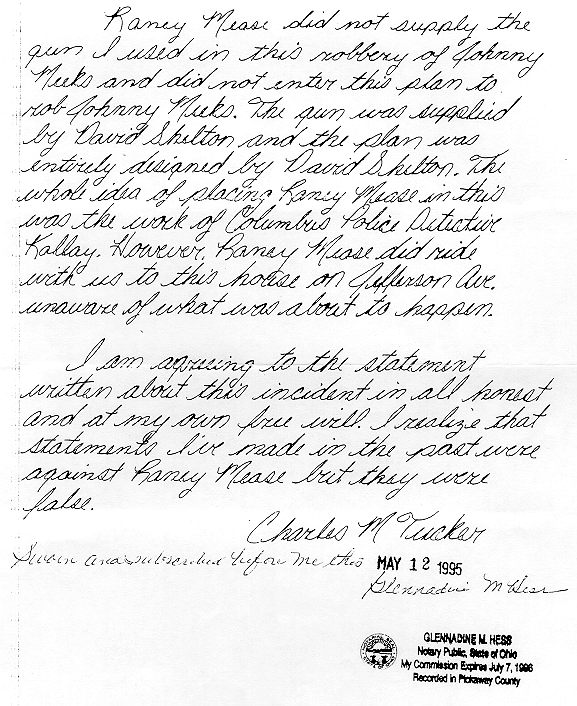 Raney Mease did not supply the
gun I used in this robbery of Johnny
Meeks and did not enter this plan to
rob Johnny Meeks. The gun was supplied
by David Shelton and the plan was
entirely designed by David Shelton. The
whole idea of placing Raney Mease in this
was the work of Columbus Police Detective
Kallay. However, Raney Mease did ride
with us to this house on Jefferson Ave.
unaware of what was about to happen.
I am agreeing to the statement
written about this incident in all honest
and at my own free will. I realize that
statements I've made in the past were
against Raney Mease but they were
false.
Charles M Tucker
Sworn and subscribed before me this MAY 12 1995
Glennadine M Hess
GLENNADINE M. HESS
Notary Public, State of Ohio
My Commission Expires July 7, 1996
Recorded in Pickaway County